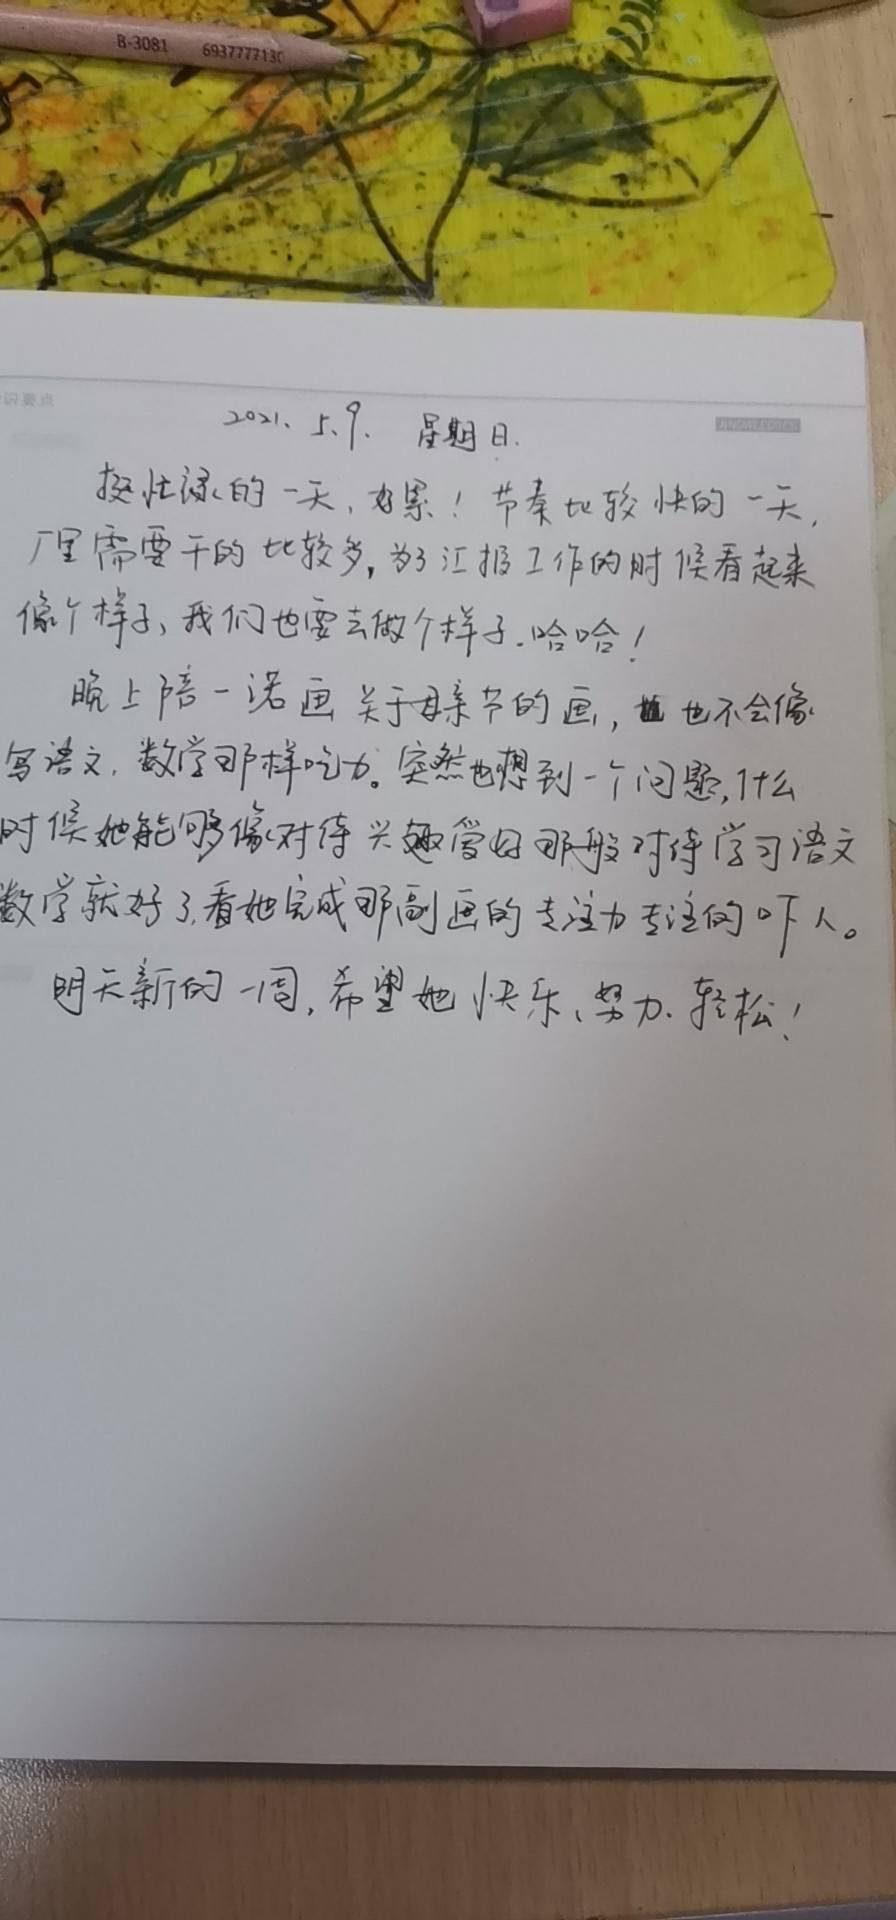 B-3081 6937777130
2021. 5.9. 星期日.
挺忙碌的一天,好累!节奏比较快的一天,
厂里需要干的比较多,为了汇报工作的时候看起来
像个样子,我们也要去做个样子.哈哈!
晚上陪一诺画关于母亲节的画,也不会像
写语文,数学那样吃力。突然也想到一个问题,什么
时候她能够像对待兴趣爱好那般对待学习语文
数学就好了,看她完成那副画的专注力专注的吓人。
明天新的一周,希望她快乐、努力、轻松!